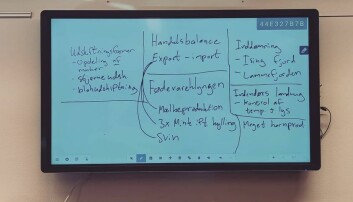 44E327B7B
Udskiftningsformer
- Opdeling af
marker
- Stjerneudsk.
- Blokudskiftning
Handelsbalance
Export - import
Fødevareklyngen
Mælkeproduktion
3x Mink
kylling
Svin
Inddæmning
- fjord
- Lammefjorden
Indendørs landbrug
- Kontrol af
temp & lys
Meget kornprod